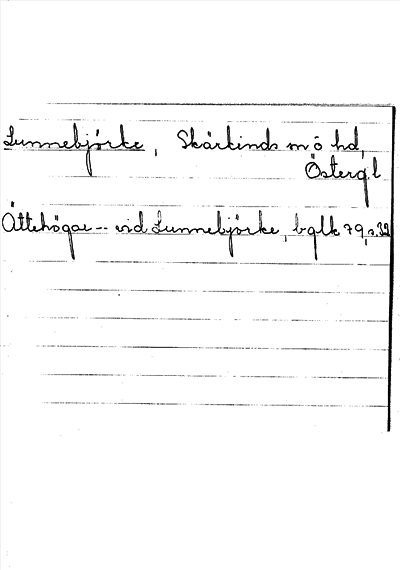 Lunnebjörke, Skärkinds sn o hd,
Östergl
Ättehögar -- vid Lunnebjörke, bqlk 79, s. 32